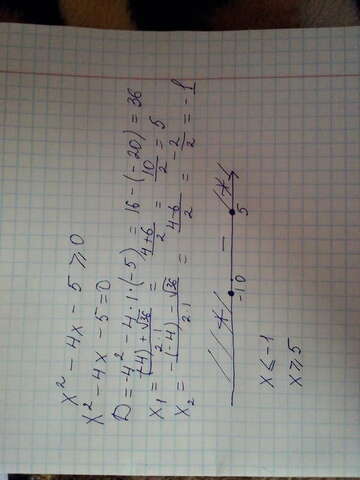 x² - 4x - 5 ⩾ 0
x² - 4x - 5 = 0
D = -4² - 4 · 1 · (-5) = 16 - (-20) = 36
x₁ = -(-4) + √36 / 2·1 = 4+6 / 2 = 10 / 2 = 5
x₂ = -(-4) - √36 / 2·1 = 4-6 / 2 = -2 / 2 = -1
+ - +
-1 0 5
x ≤ -1
x ⩾ 5